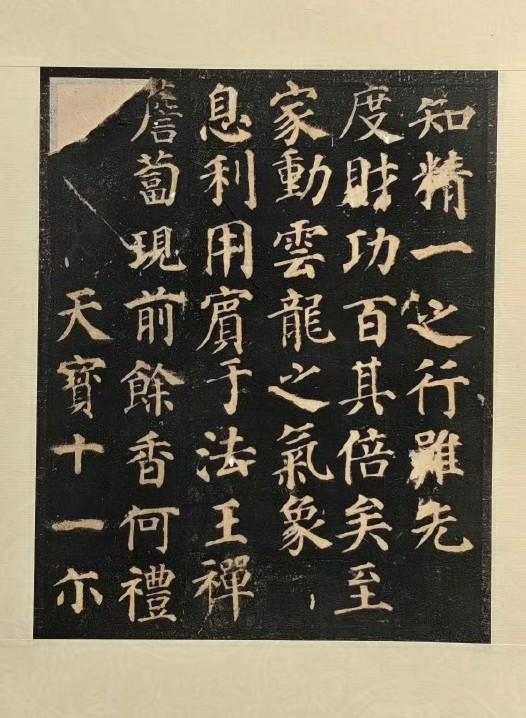 知精一之行雖先
度財功百其倍矣至
家動雲龍之氣象
息利用賓于法王禪
詹蔔現前餘香何禮
天寶十一尒